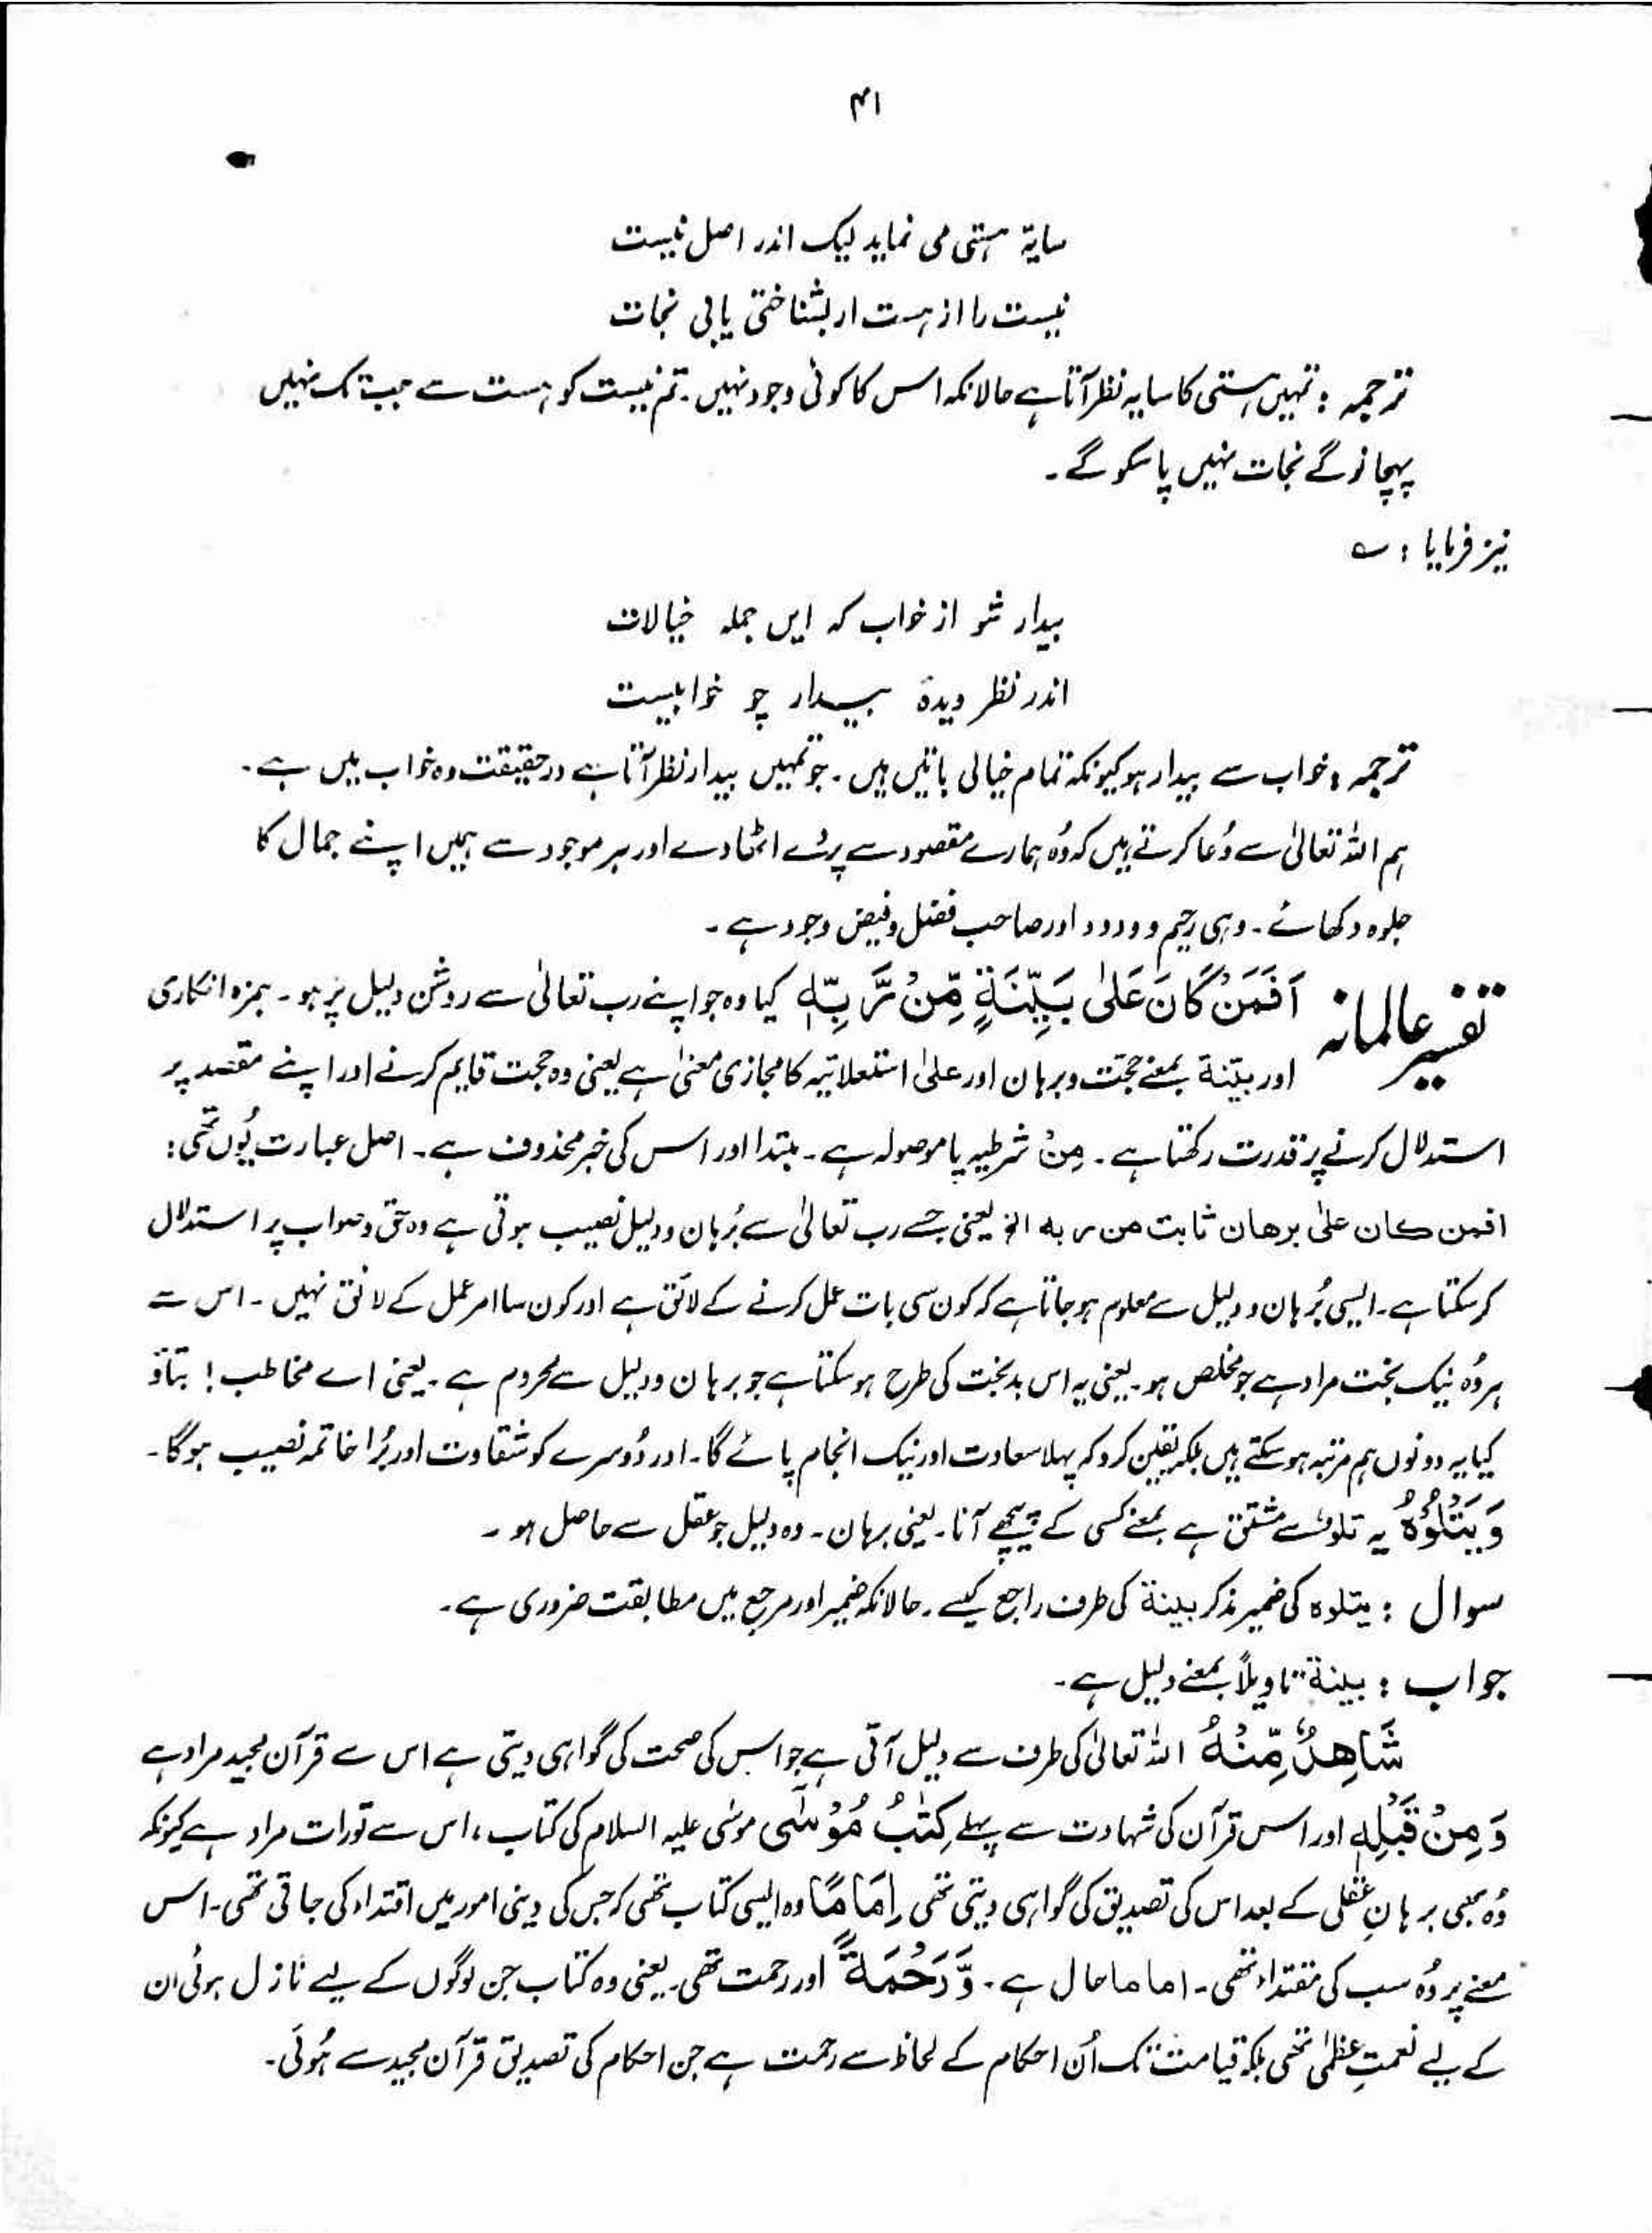 ۴۱
سایۂ ہستی می نماید لیک اندر اصل نیست
نیست را از ہست ار بشناختی یابی نجات
ترجمہ : تمہیں ہستی کا سایہ نظر آتا ہے حالانکہ اس کا کوئی وجود نہیں ۔ تم نیست کو ہست سے جب تک نہیں
پہچانو گے نجات نہیں پا سکو گے ۔
نیز فرمایا : ؎
بیدار شو از خواب کہ ایں جملہ خیالات
اندر نظر دیدۂ بیدار چو خوابیست
ترجمہ : خواب سے بیدار ہو کیونکہ تمام خیالی باتیں ہیں ۔ جو تمہیں بیدار نظر آتا ہے درحقیقت وہ خواب میں ہے ۔
ہم اللہ تعالیٰ سے دُعا کرتے ہیں کہ وُہ ہمارے مقصود سے پردے اٹھا دے اور ہر موجود سے ہمیں اپنے جمال کا
جلوہ دکھائے ۔ وہی رحیم و ودود اور صاحب فضل و فیض وجود ہے ۔
تفسیر عالمانہ اَفَمَنْ كَانَ عَلٰى بَيِّنَةٍ مِّنْ رَّبِّهٖ کیا وہ جو اپنے رب تعالیٰ سے روشن دلیل پر ہو ۔ ہمزہ انکاری
اور بیّنۃ بمعنے حجت و برہان اور علیٰ استعلائیہ کا مجازی معنیٰ ہے یعنی وہ حجت قایم کرنے اور اپنے مقصد پر
استدلال کرنے پر قدرت رکھتا ہے ۔ مِنْ شرطیہ یا موصولہ ہے ۔ مبتدا اور اس کی خبر محذوف ہے ۔ اصل عبارت یُوں تھی :
افمن کان علیٰ برھان ثابت من ربه الخ یعنی جسے رب تعالیٰ سے بُرہان و دلیل نصیب ہوتی ہے وہ حق و صواب پر استدلال
کر سکتا ہے ۔ ایسی بُرہان و دلیل سے معلوم ہو جاتا ہے کہ کون سی بات عمل کرنے کے لائق ہے اور کون سا امر عمل کے لائق نہیں ۔ اس سے
ہر وُہ نیک بخت مراد ہے جو مخلص ہو ۔ یعنی یہ اس بد بخت کی طرح ہو سکتا ہے جو برہان و دلیل سے محروم ہے ۔ یعنی اے مخاطب ! بتاؤ
کیا یہ دونوں ہم مرتبہ ہو سکتے ہیں بلکہ یقین کرو کہ پہلا سعادت اور نیک انجام پائے گا ۔ اور دُوسرے کو شقاوت اور بُرا خاتمہ نصیب ہو گا ۔
وَيَتْلُوْهُ یہ تلو سے مشتق ہے بمعنے کسی کے پیچھے آنا ۔ یعنی برہان ۔ وہ دلیل جو عقل سے حاصل ہو ۔
سوال : یتلوہ کی ضمیر مذکر بینة کی طرف راجع کیسے ۔ حالانکہ ضمیر اور مرجع میں مطابقت ضروری ہے ۔
جواب : بینة تاویلاً بمعنے دلیل ہے ۔
شَاهِدٌ مِّنْهُ اللہ تعالیٰ کی طرف سے دلیل آتی ہے جو اس کی صحت کی گواہی دیتی ہے اس سے قرآن مجید مراد ہے
وَمِنْ قَبْلِهٖ اور اس قرآن کی شہادت سے پہلے كِتٰبُ مُوْسٰٓى موسٰی علیہ السلام کی کتاب ، اس سے تورات مراد ہے کیونکہ
وُہ بھی برہانِ عقلی کے بعد اس کی تصدیق کی گواہی دیتی تھی اِمَامًا وہ ایسی کتاب تھی کہ جس کی دینی امور میں اقتداء کی جاتی تھی ۔ اس
معنے پر وُہ سب کی مقتداء تھی ۔ اماما حال ہے ۔ وَّرَحْمَةً اور رحمت تھی یعنی وہ کتاب جن لوگوں کے لیے نازل ہوئی ان
کے لیے نعمتِ عظمٰی تھی بلکہ قیامت تک اُن احکام کے لحاظ سے رحمت ہے جن احکام کی تصدیق قرآن مجید سے ہُوئی ۔